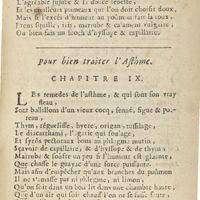 L'agréable jujube & la douce rebette,
Et les cailleux pruneaux que l'ou doit choisir doux,
Mais si l'excés d'humeur au poûmon fait la toux :
Prens squille, iris, marrube & calament vulgaire,
Ou bien fais un looch d'hyssope & capillaire.
Pour bien traiter l'Asthme.
CHAPITRE IX.
LEs remedes de l'asthme, & qui sont son vray
fleau,
Sont bouillon d'un vieux cocq, sené, figue & po-
reau,
Thym, réguelisse, hyere, origan, tussilage,
Le diacarthami, l' garic qui soulage,
Et syrôs pectoraux bons au phlegme mutin,
Sçavoir de capillaires, & d'hyssope & de thym;
Marrube & souffre un peu se l'humeur est gluante,
Que chasse le guayac d'une force puissante.
Mais afin d'empescher qu'aux branches du poûmon
Il ne s'amasse par ni phlegme, ni limon,
Qu'on soit dans un bon lit dans une chambre haute,